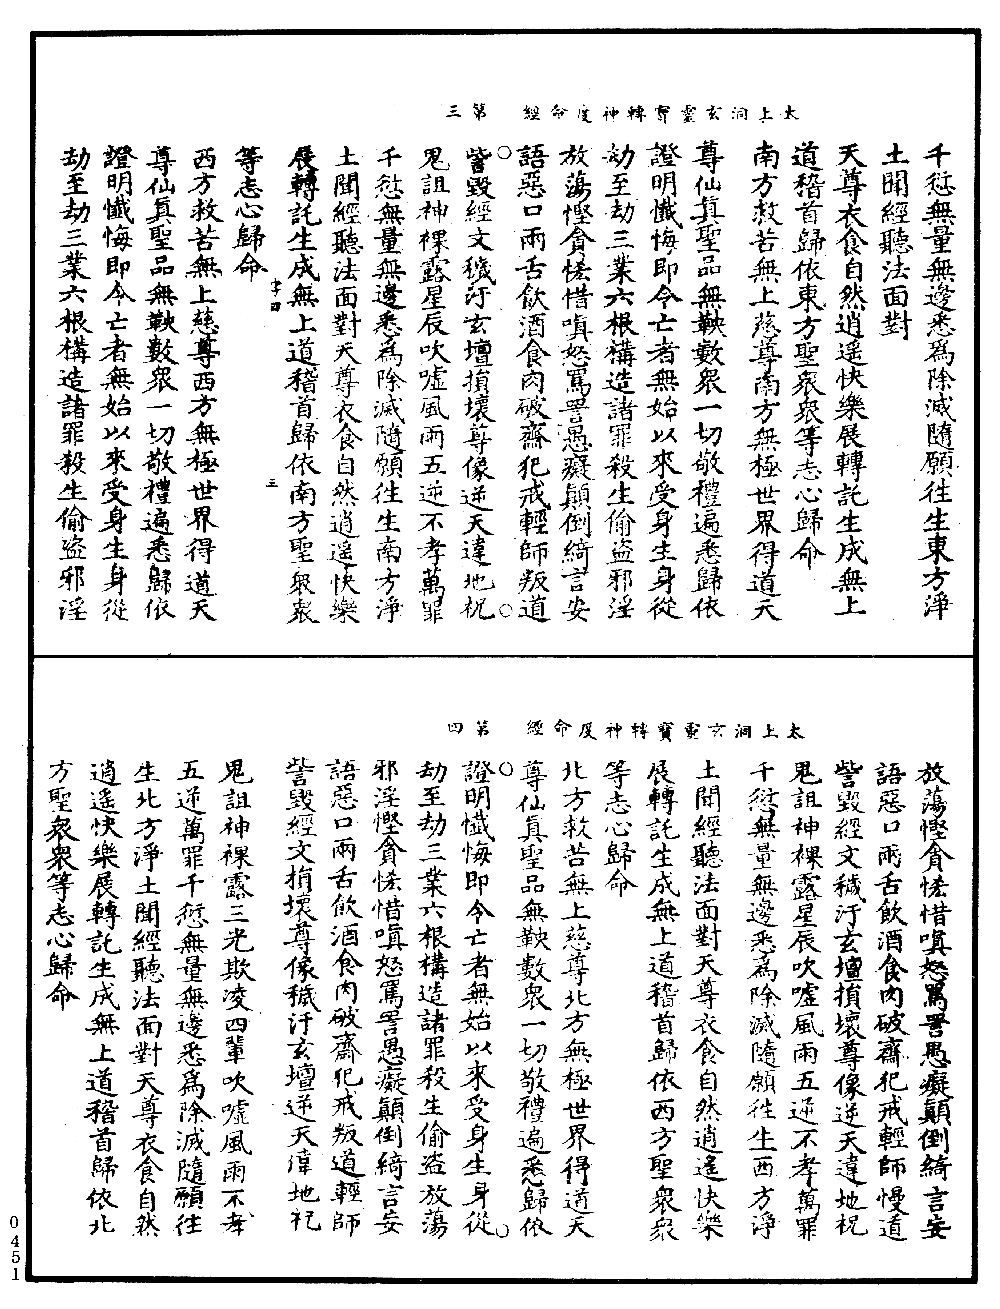 太上洞玄靈寶轉神度命經　第三
千愆無量無邊悉為除滅隨願往生東方淨
土聞經聽法面對
天尊衣食自然逍遥快樂展轉託生成無上
道稽首歸依東方聖衆衆等志心歸命
南方救苦無上慈尊南方無極世界得道天
尊仙真聖品無鞅數衆一切敬禮遍悉歸依
證明懺悔即今亡者無始以來受身生身從
劫至劫三業六根構造諸罪殺生偷盗邪淫
放蕩慳貪悋惜嗔怒罵詈愚癡顛倒綺言妄
語惡口兩舌飲酒食肉破齋犯戒輕師叛道
訾毀經文穢汙玄壇損壞尊像逆天違地祝
鬼詛神裸露星辰吹噓風雨五逆不孝萬罪
千愆無量無邊悉為除滅隨願往生南方淨
土聞經聽法面對天尊衣食自然逍遥快樂
展轉託生成無上道稽首歸依南方聖衆衆
三
等志心歸命
西方救苦無上慈尊西方無極世界得道天
尊仙真聖品無鞅數衆一切敬禮遍悉歸依
證明懺悔即今亡者無始以來受身生身從
劫至劫三業六根構造諸罪殺生偷盗邪淫
太上洞玄靈寶轉神度命經　第四
放蕩慳貪悋惜嗔怒罵詈愚癡顛倒綺言妄
語惡口兩舌飲酒食肉破齋犯戒輕師慢道
訾毀經文穢汙玄壇損壞尊像逆天違地祝
鬼詛神裸露星辰吹噓風雨五逆不孝萬罪
千愆無量無邊悉為除滅隨願往生西方淨
土聞經聽法面對天尊衣食自然逍遥快樂
展轉託生成無上道稽首歸依西方聖衆衆
等志心歸命
北方救苦無上慈尊北方無極世界得道天
尊仙真聖品無鞅數衆一切敬禮遍悉歸依
證明懺悔即今亡者無始以來受身生身從
劫至劫三業六根構造諸罪殺生偷盗放蕩
邪淫慳貪悋惜嗔怒罵詈愚癡顛倒綺言妄
語惡口兩舌飲酒食肉破齋犯戒叛道輕師
訾毀經文損壞尊像穢汙玄壇逆天違地祀
鬼詛神裸露三光欺凌四輩吹噓風雨不孝
五逆萬罪千愆無量無邊悉為除滅隨願往
生北方淨土聞經聽法面對天尊衣食自然
逍遥快樂展轉託生成無上道稽首歸依北
方聖衆衆等志心歸命
0451